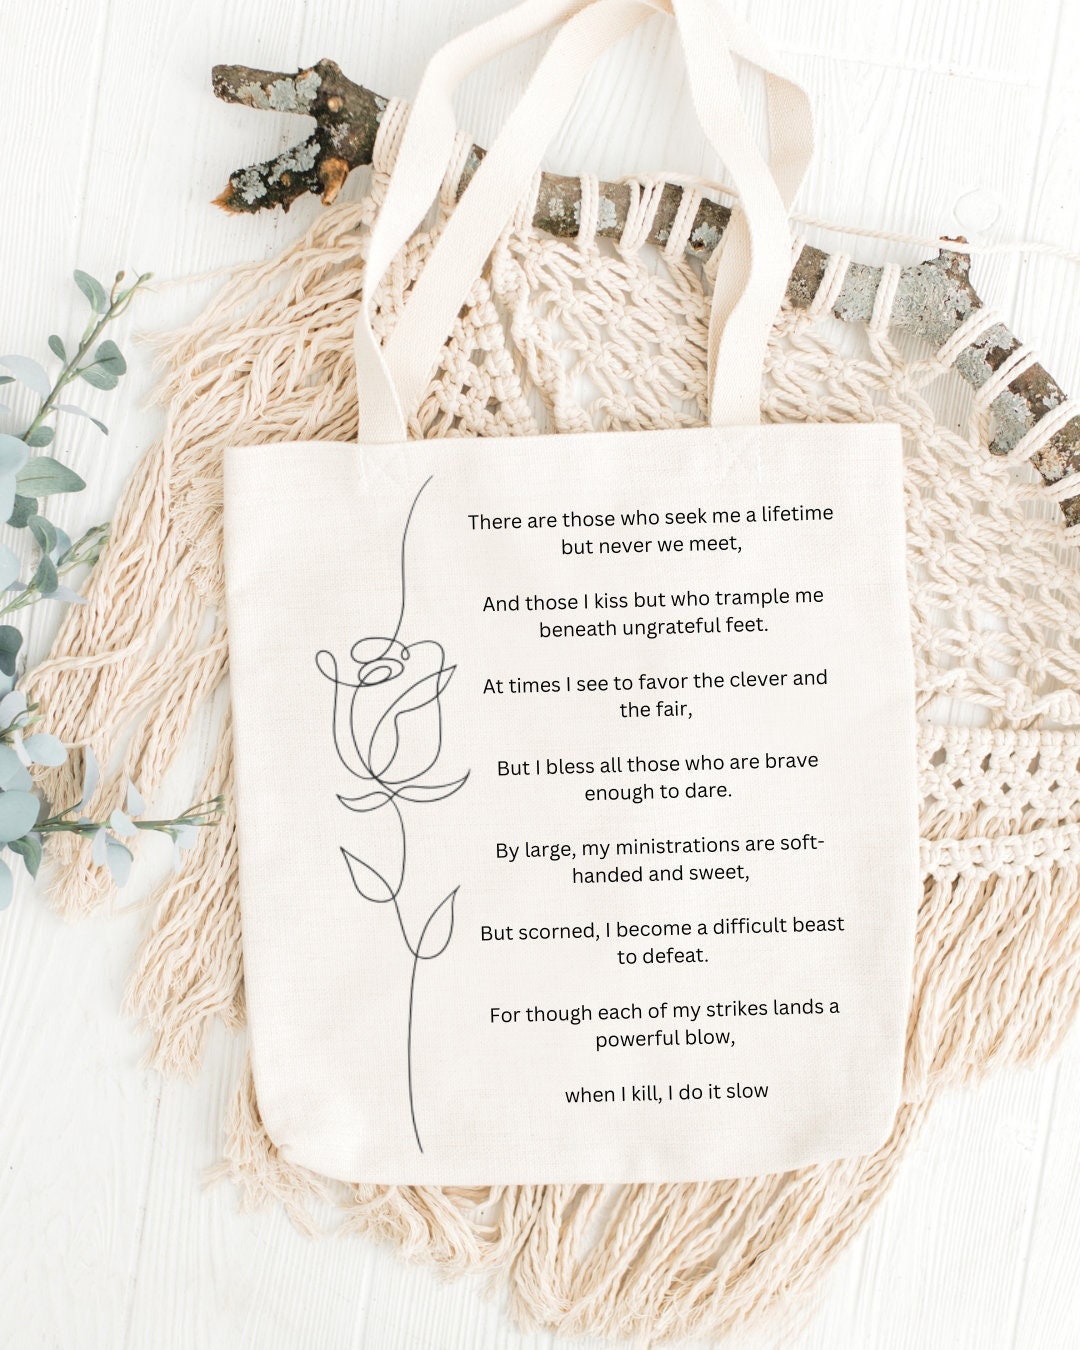 There are those who seek me a lifetime
but never we meet,
And those I kiss but who trample me
beneath ungrateful feet.
At times I see to favor the clever and
the fair,
But I bless all those who are brave
enough to dare.
By large, my ministrations are soft-
handed and sweet,
But scorned, I become a difficult beast
to defeat.
For though each of my strikes lands a
powerful blow,
when I kill, I do it slow